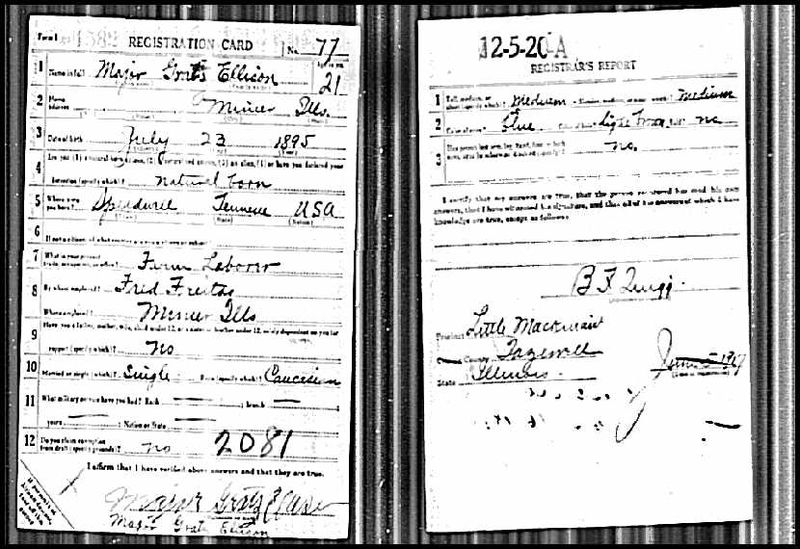 Form 1 1582 REGISTRATION CARD No. 77
1 Name in full Major Grats Ellison Age, in yrs. 21
2 Home address Minier Ills.
3 Date of birth July 23 1895
4 Are you (1) a natural born citizen, (2) a naturalized citizen, (3) an alien, (4) or have you declared your
intention (specify which)? natural born
5 Where were you born? Tennessee USA
6 If not a citizen, of what country are you a citizen or subject?
7 What is your present trade, occupation, or office? Farm Laborer
8 By whom employed? Fred Freitag
Where employed? Minier Ills
9 Have you a father, mother, wife, child under 12, or a sister or brother under 12, solely dependent on you for
support (specify which)? No
10 Married or single (which)? Single Race (specify which)? Caucasian
11 What military service have you had? Rank — ; branch —
years — ; Nation or State —
12 Do you claim exemption from draft (specify grounds)? no 2081
I affirm that I have verified above answers and that they are true.
Major Grats Ellison
Major Grats Ellison
12-5-20 A
REGISTRAR'S REPORT
1 Tall, medium, or short (specify which)? Medium Slender, medium, or stout (which)? Medium
2 Color of eyes? Blue Color of hair? light brown Bald? no
3 no.
I certify that my answers are true, that the person registered has read his own
answers, that I have witnessed his signature, and that all of his answers of which I have
knowledge are true, except as follows:
B F Quigg
Precinct Little Mackinaw
County Tazewell
State Illinois. June 5 1917